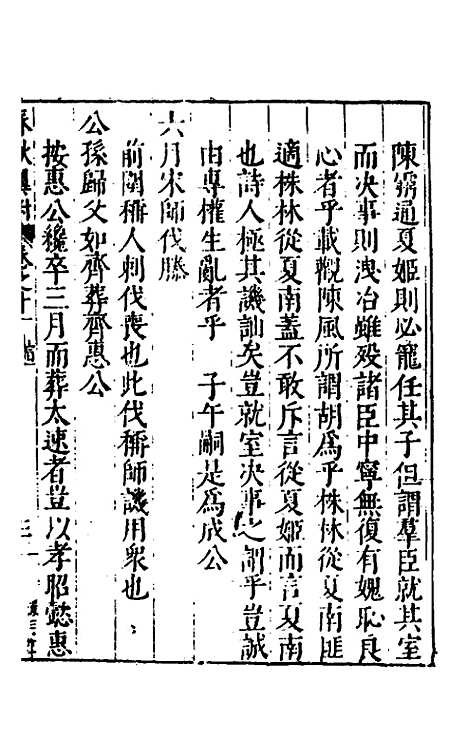 陳窮通夏姬則必寵任其子但謂羣臣就其室
而决事則洩冶雖殁諸臣中寧無復有媿恥良
心者乎載觀陳風所謂胡爲乎株林從夏南匪
適株林從夏南蓋不敢斥言從夏姬而言夏南
也詩人極其譏訕矣豈就室决事之謂乎豈誠
由專權生亂者乎 子午嗣是爲成公
六月宋師伐滕
前圍稱人刺伐喪也此伐稱師譏用衆也
公孫歸父如齊葬齊惠公
按惠公纔卒三月而葬太速者豈以孝昭懿惠
春秋
卷之十一